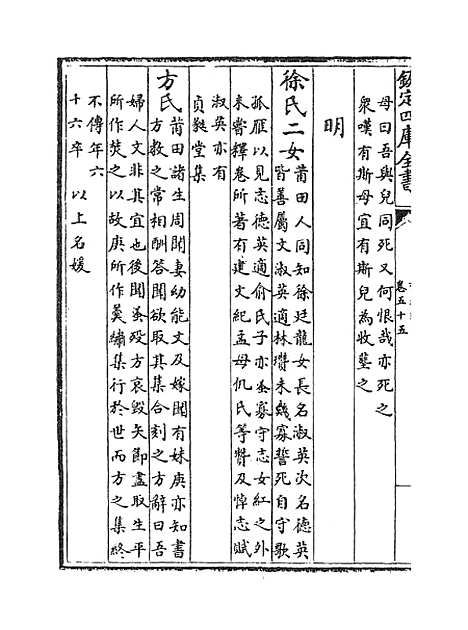 欽定四庫全書
卷五十五
母曰吾與兒同死又何恨哉亦死之
衆嘆有斯母宜有斯兒為收葬之
明
徐氏二女
莆田人同知徐廷龍女長名淑英次名德英
皆善屬文淑英適林瓚未幾寡誓死自守歌
孤雁以見志德英適俞氏子亦蚤寡守志女紅之外
未嘗釋卷所著有建文紀孟母仉氏等贊及悼志賦
淑英亦有
貞㲠堂集
方氏
莆田諸生周聞妻幼能文及嫁聞有妹庚亦知書
方教之常相酬答聞欲取其集合刻之方辭曰吾
婦人文非其宜也後聞蚤殁方哀毁矢節盡取生平
所作焚之以故庚所作羹繡集行於世而方之集終
不傳年六
十六卒
以上名媛